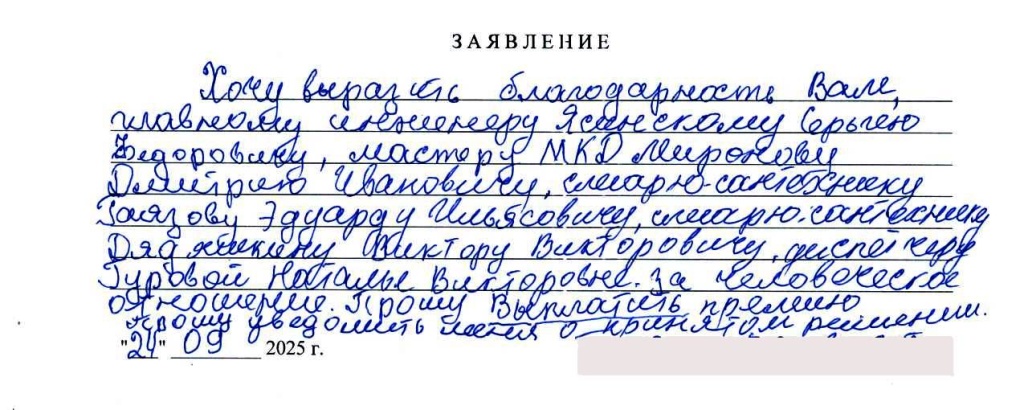 ЗАЯВЛЕНИЕ
Хочу выразить благодарность Вам,
главному инженеру Ясинскому Сергею
Федоровичу, мастеру МКД Миронову
Дмитрию Ивановичу, слесарю-сантехнику
Эдуарду Ильясовичу, слесарю-сантехнику
Виктору Викторовичу, диспетчеру
Гуровой Наталье Викторовне. За человеческое
отношение. Прошу выплатить премию
Прошу уведомить меня о принятом решении.
"24" 09 2025 г.